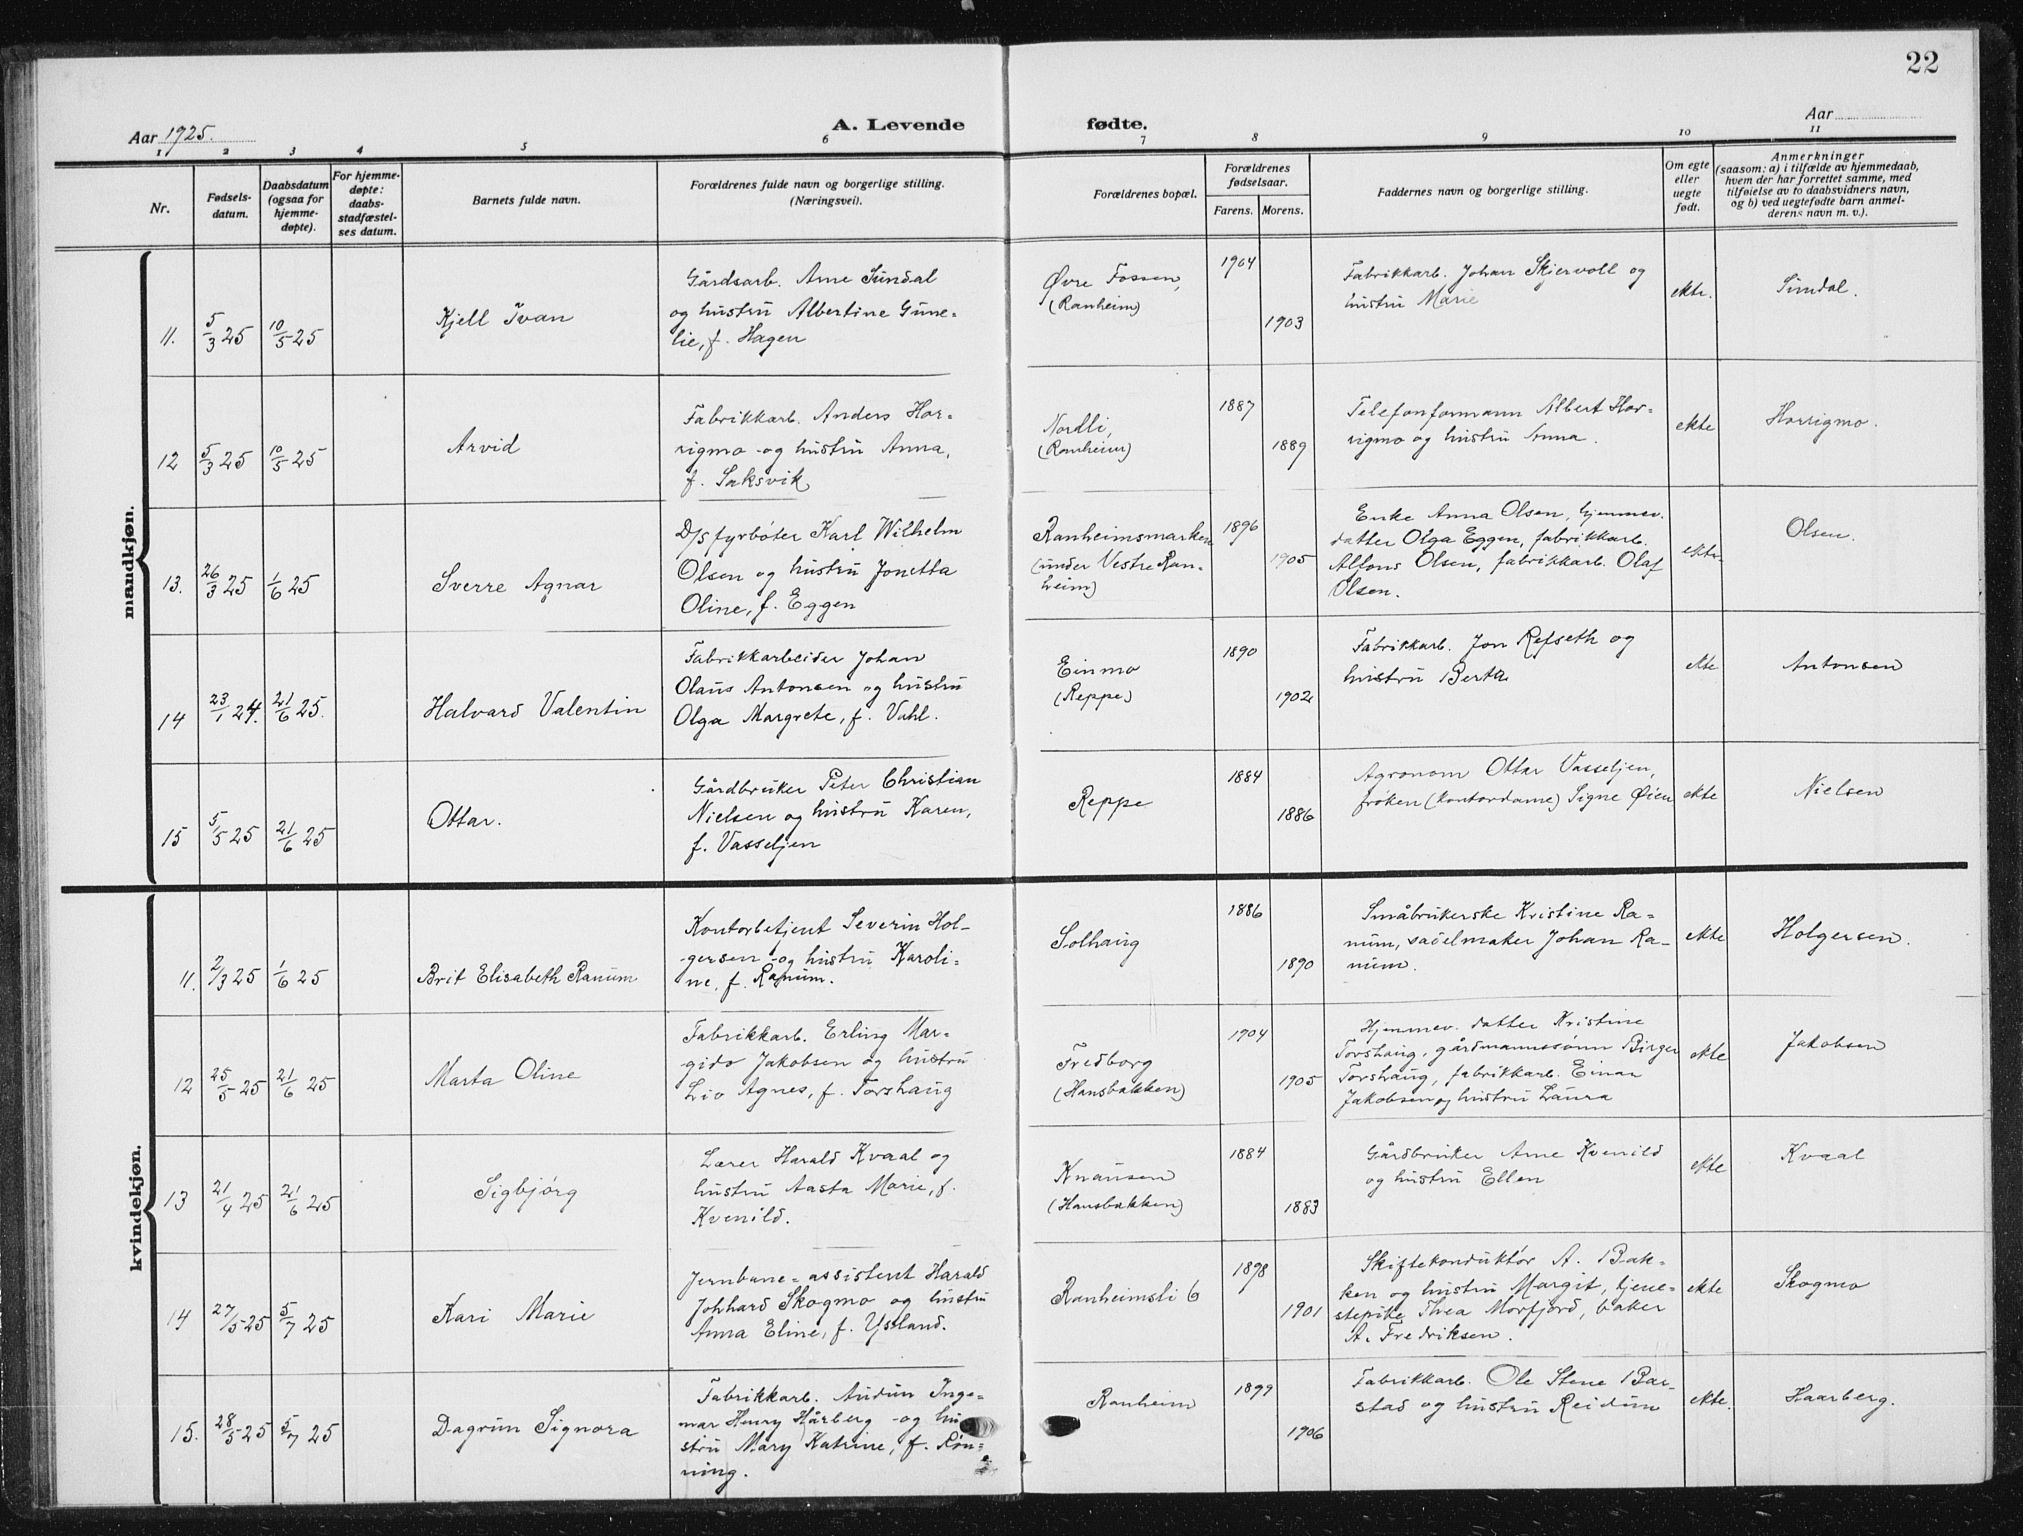 22
Aar 1925.
A. Levende fødte.
Aar
1 2 3 4 5 6 7 8 9 10 11
Nr.
Fødsels-
datum.
Daabsdatum
(ogsaa for
hjemme-
døpte).
For hjemme-
døpte:
daabs-
stadfæstel-
ses datum.
Barnets fulde navn.
Forældrenes fulde navn og borgerlige stilling.
(Næringsvei).
Forældrenes bopæl.
Forældrenes
fødselsaar.
Farens. Morens.
Faddernes navn og borgerlige stilling.
Om egte
eller
uegte
født.
Anmerkninger
(saasom: a) i tilfælde av hjemmedaab,
hvem der har forrettet samme, med
tilføielse av to daabsvidners navn,
og b) ved uegtefødte barn anmel-
derens navn m. v.).
mandkjøn.
11. 5/3 25 10/5 25
Kjell Ivan
Gårdsarb. Arne Sundal
og hustru Albertine Gune-
lie, f. Hagen
Øvre Fossen,
(Ranheim)
1904
1903
Fabrikkarb. Johan Skjervoll og
hustru Marie
ekte.
Sundal.
12 5/3 25 10/5 25
Arvid
Fabrikkarb. Anders Hor-
rigmo og hustru Anna,
f. Saksvik
Nordli,
(Ranheim)
1887
1889
Telefonformann Albert Hor-
rigmo og hustru Anna.
ekte
Horrigmo.
13. 26/3 25 1/6 25
Sverre Agnar
D/s fyrbøter Karl Wilhelm
Olsen og hustru Jonetta
Oline, f. Eggen
Ranheimsmarken
(under Vestre Ran-
heim)
1896
1905
Enke Anna Olsen, hjemmev.
datter Olga Eggen, fabrikkarb.
Alfons Olsen, fabrikkarb. Olaf
Olsen.
ekte
Olsen.
14 23/1 24. 21/6 25.
Halvard Valentin
Fabrikkarbeider Johan
Olaus Antonsen og hustru
Olga Margrete, f. Vahl.
Einmo
(Reppe)
1890
1902
Fabrikkarb. Jon Refseth og
hustru Berta
ekte
Antonsen
15 5/5 25 21/6 25
Ottar.
Gårdbruker Peter Christian
Nielsen og hustru Karen,
f. Vasseljen
Reppe
1884
1886
Agronom Ottar Vasseljen,
frøken (kontordame) Signe Øien
ekte
Nielsen
kvindekjøn.
11. 2/3 25 1/6 25
Brit Elisabeth Ranum
Kontorbetjent Severin Hol-
gersen og hustru Karoli-
ne, f. Ranum.
Solhaug
1886
1890
Småbrukerske Kristine Ra-
num, sadelmaker Johan Ra-
num.
ekte
Holgersen.
12 25/5 25 21/6 25
Marta Oline
Fabrikkarb. Erling Mar-
gido Jakobsen og hustru
Liv Agnes, f. Torshaug
Fredborg
(Hansbakken)
1904
1905
Hjemmev. datter Kristine
Torshaug, gårdmannssønn Birger
Torshaug, fabrikkarb. Einar
Jakobsen og hustru Laura
ekte
Jakobsen
13 21/4 25 21/6 25
Sigbjørg
Lærer Harald Kvaal og
hustru Aasta Marie, f.
Kvenild.
Knausen
(Hansbakken)
1884
1883
Gårdbruker Arne Kvenild
og hustru Ellen
ekte
Kvaal
14 27/5 25 5/7 25
Kari Marie
Jernbane-assistent Harald
Johhard Skogmo og hustru
Anna Eline, f. Ystland.
Ranheimsli 6
1898
1901
Skiftekonduktør A. Bak-
ken og hustru Margit, tjene-
stepike Thea Morfjord, baker
A. Fredriksen.
ekte
Skogmo
15. 28/5 25 5/7 25
Dagrun Signora
Fabrikkarb. Audun Inge-
mar Henry Hårberg og hu-
stru Mary Katrine, f. Røn-
ning.
Ranheim
1899
1906
Fabrikkarb. Ole Stene Bar-
stad og hustru Reidun
ekte.
Haarberg.